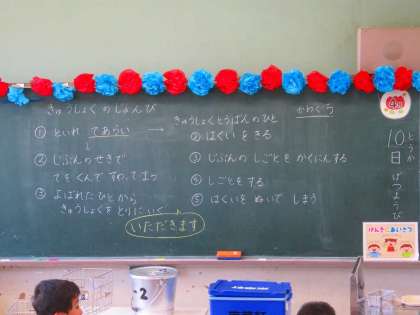 きゅうしょくのじゅんび
① といれ てあらい
↓
② じぶんのせきで
てをくんですわってまつ
③ よばれたひとから
きゅうしょくをとりにいく
いただきます
きゅうしょくとうばんのひと
② はくいをきる
③ じぶんのしごとをかくにんする
④ しごとをする
⑤ はくいをぬいでしまう
10
日
げつようび
げんきにあいさつ
-2